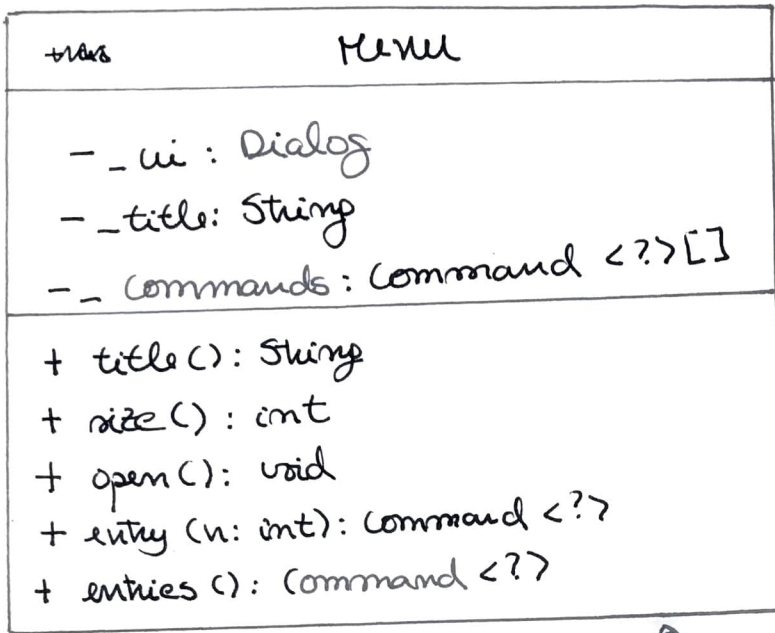 Menu
- _ui : Dialog
- _title: String
- _ commands: Command <?>[]
+ title(): String
+ size(): int
+ open(): void
+ entry (n: int): Command <?>
+ entries (): Command <?>